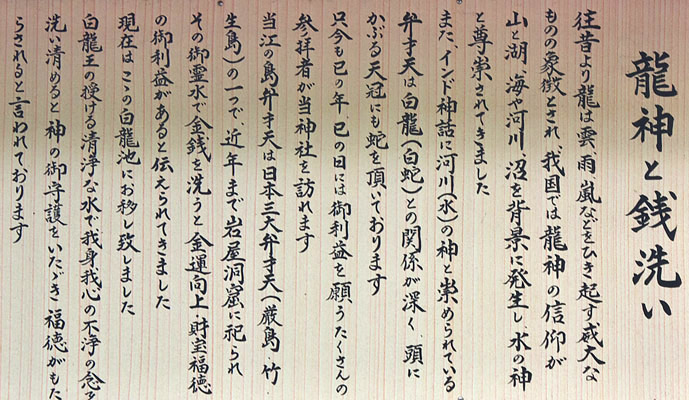 龍神と銭洗い
往昔より龍は雲、雨、嵐などをひき起す威大な
ものの象徴とされ、我国では龍神の信仰が
山と湖、海や河川、沼を背景に発生し、水の神
と尊崇されてきました
また、インド神話に河川(水)の神と崇められている
弁才天は白龍(白蛇)との関係が深く、頭に
かぶる天冠にも蛇を頂いております
只今も巳の年、巳の日には御利益を願うたくさんの
参拝者が当神社を訪れます
当江の島弁才天は日本三大弁才天(厳島・竹
生島)の一つで、近年まで岩屋洞窟に祀られ
その御霊水で金銭を洗うと金運向上・財宝福徳
の御利益があると伝えられてきました
現在はこゝの白龍池にお移し致しました
白龍王の授ける清浄な水で我身我心の不浄の念を
洗い清めると神の御守護をいたゞき福徳がもた
らされると言われております